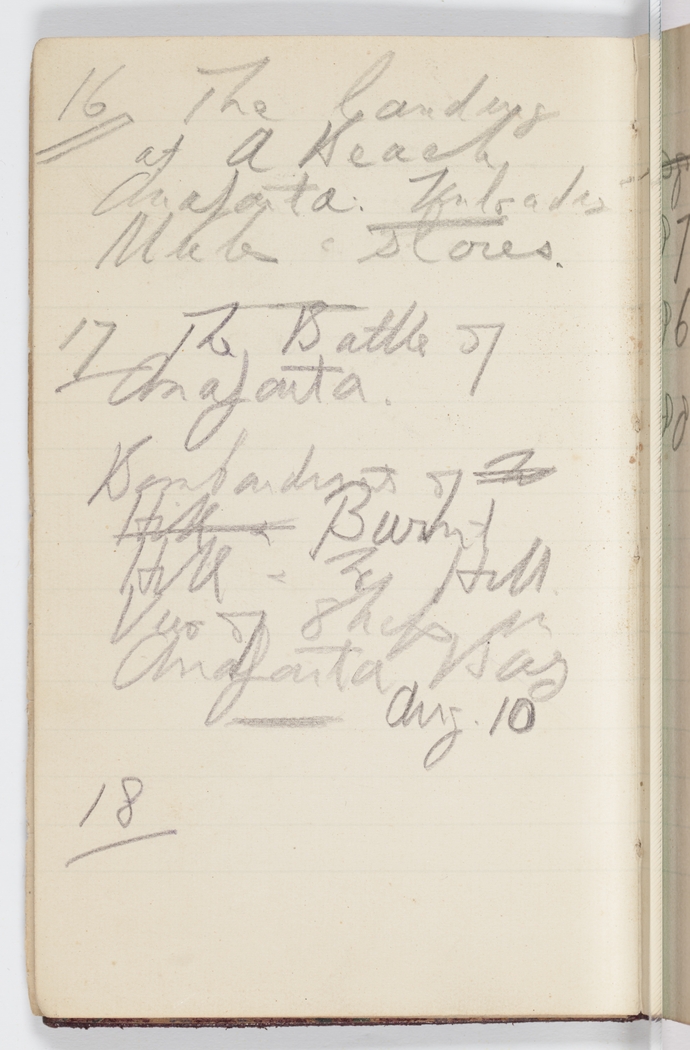 16 The Landing
at A Beach
Anafarta. Unloading
Mules & Stores.
17 The Battle of
Anafarta.
Bombardment of
Hill & Burnt
Hill & Hill
View of Ships in
Anafarta Bay
Aug. 10
18